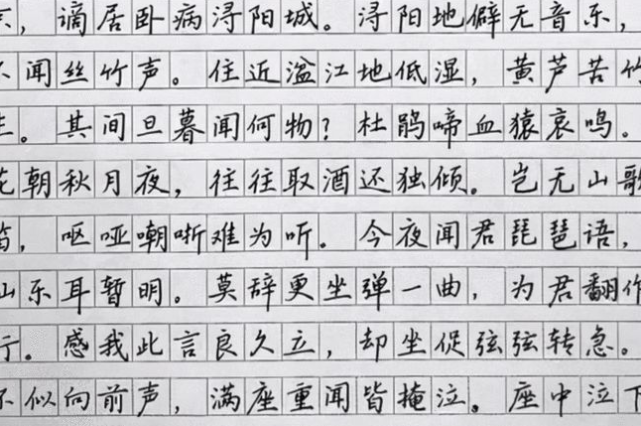 ，谪居卧病浔阳城。浔阳地僻无音乐，
不闻丝竹声。住近湓江地低湿，黄芦苦竹
生。其间旦暮闻何物？杜鹃啼血猿哀鸣。
花朝秋月夜，往往取酒还独倾。岂无山歌
笛，呕哑嘲哳难为听。今夜闻君琵琶语，
山乐耳暂明。莫辞更坐弹一曲，为君翻作
行。感我此言良久立，却坐促弦弦转急。
不似向前声，满座重闻皆掩泣。座中泣下